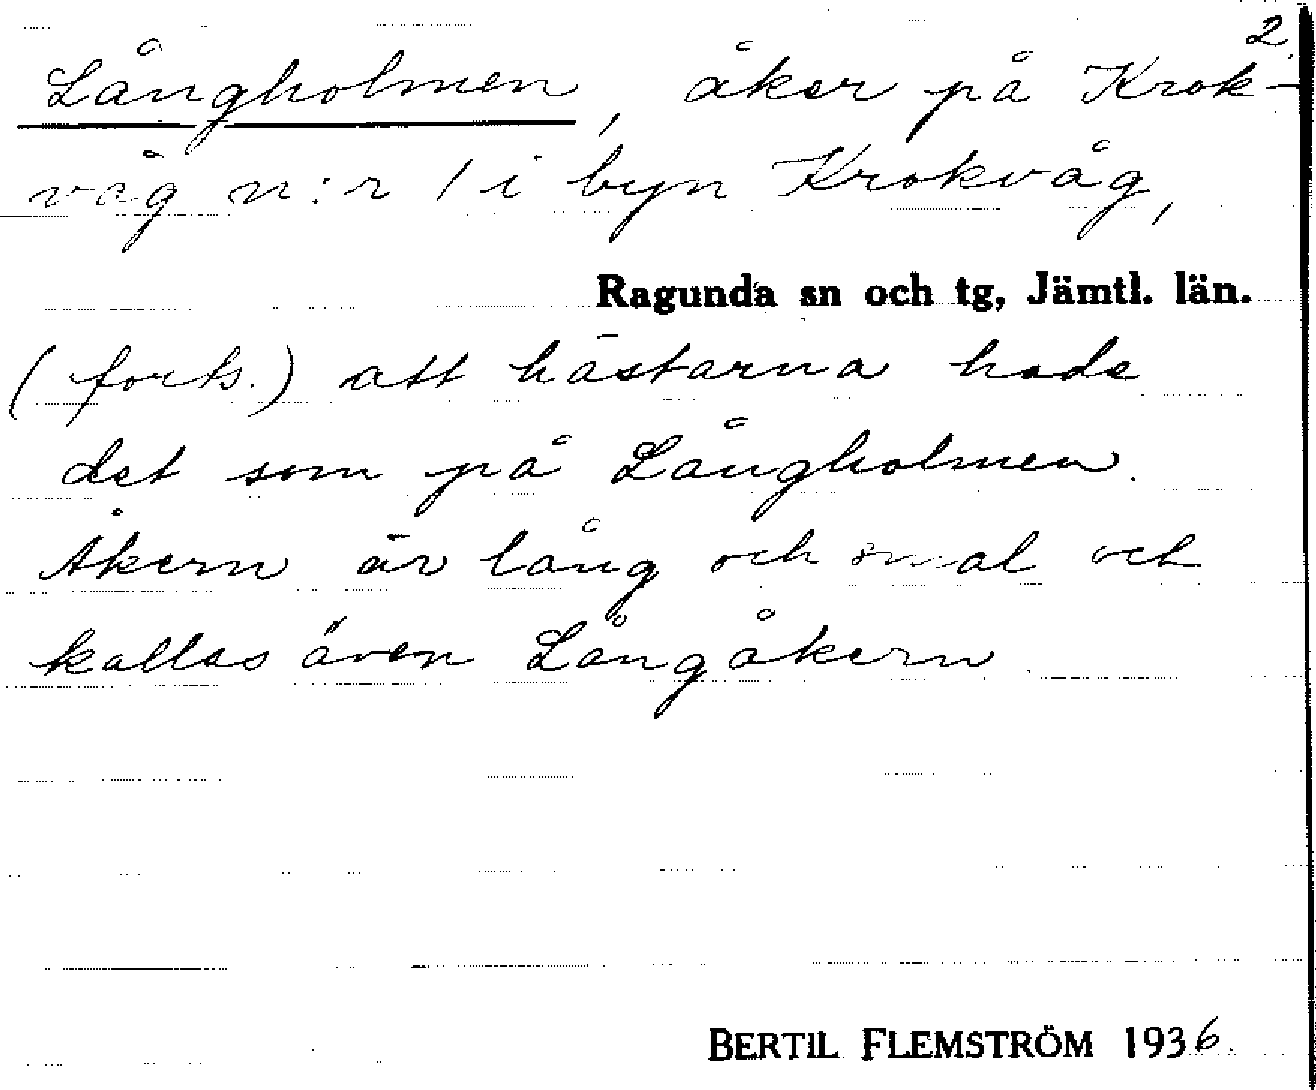 2.
Långholmen, åker på Krok-
våg n:r 1 i byn Krokvåg,
Ragunda sn och tg, Jämtl. län.
(forts.) att hästarna hade
det som på Långholmen.
Åkern är lång och smal och
kallas även Långåkern
BERTIL FLEMSTRÖM 1936.